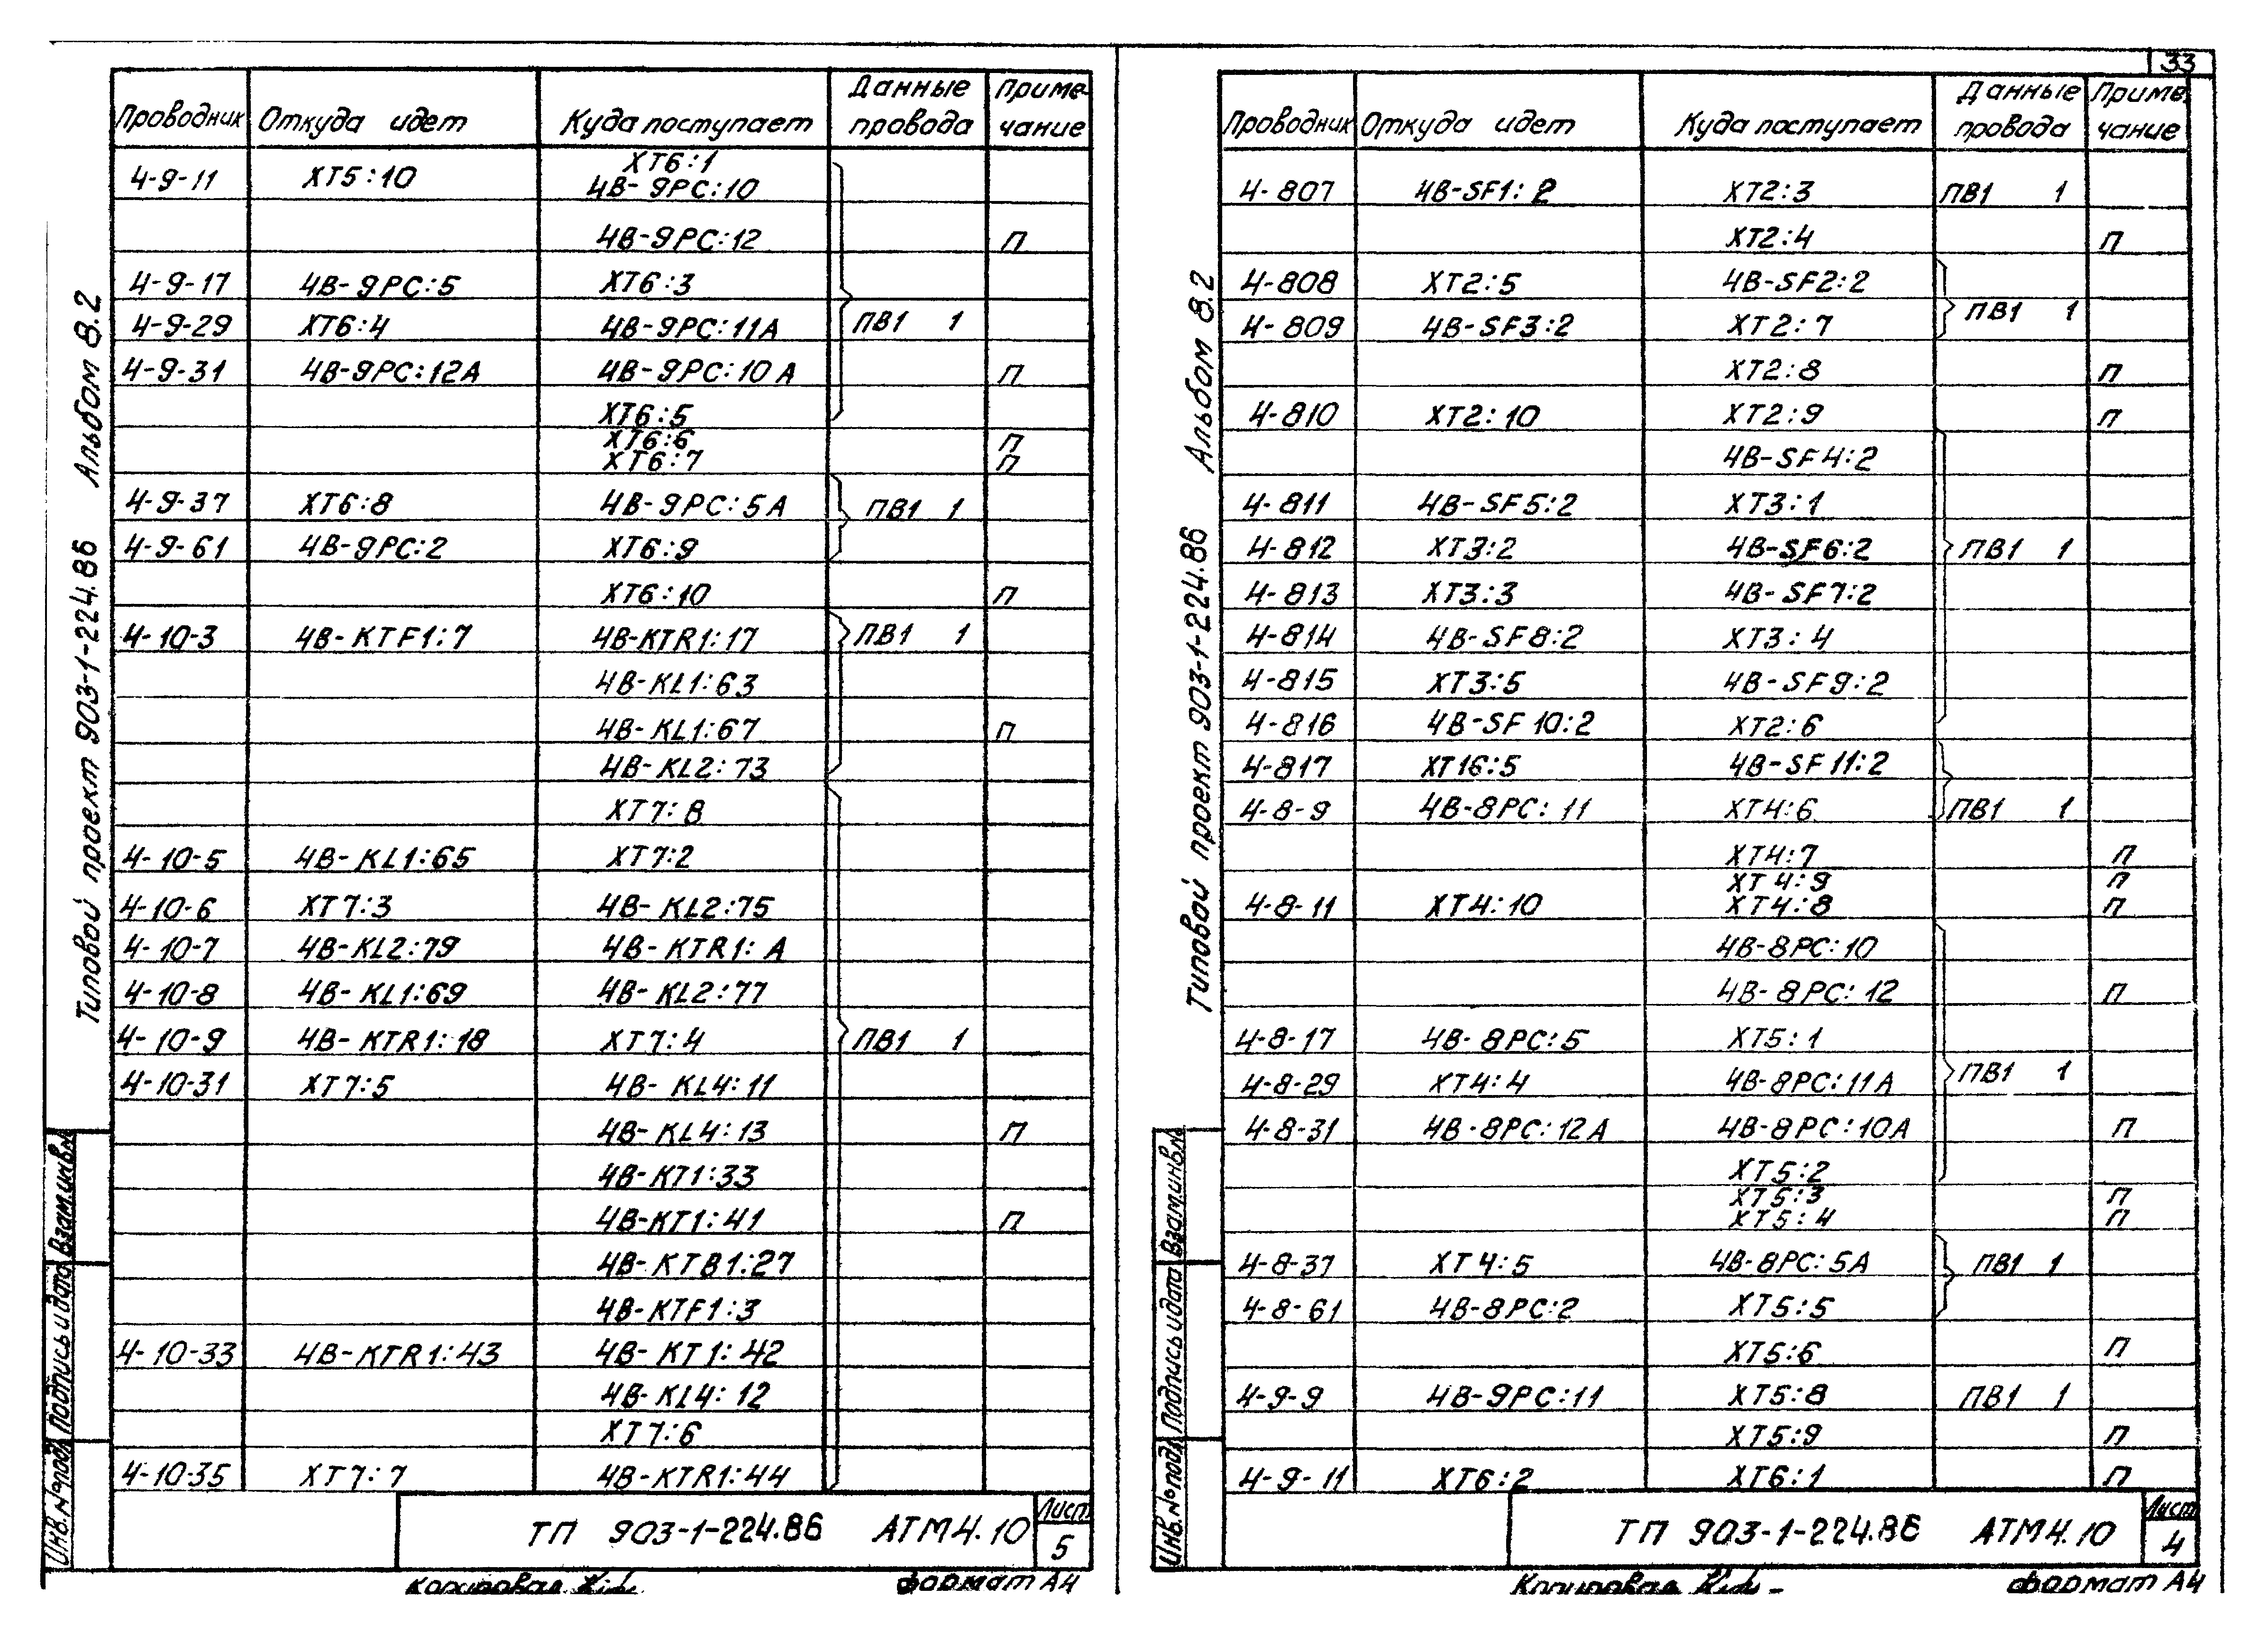 Проводник Откуда идет Куда поступает Данные провода Приме-чание
4-9-11 XT5:10 XT6:1
4В-9РС:10
4В-9РС:12 П
4-9-17 4В-9РС:5 XT6:3
4-9-29 XT6:4 4В-9РС:11А ПВ1 1
4-9-31 4В-9РС:12А 4В-9РС:10А П
XT6:5
XT6:6 П
XT6:7 П
4-9-37 XT6:8 4В-9РС:5А ПВ1 1
4-9-61 4В-9РС:2 XT6:9
XT6:10 П
4-10-3 4В-KTF1:7 4В-KTR1:17 ПВ1 1
4В-KL1:63
4В-KL1:67 П
4В-KL2:73
XT7:8
4-10-5 4В-KL1:65 XT7:2
4-10-6 XT7:3 4В-KL2:75
4-10-7 4В-KL2:79 4В-KTR1:А
4-10-8 4В-KL1:69 4В-KL2:77
4-10-9 4В-KTR1:18 XT7:4 ПВ1 1
4-10-31 XT7:5 4В-KL4:11
4В-KL4:13 П
4В-KT1:33
4В-KT1:41 П
4В-KTB1:27
4В-KTF1:3
4-10-33 4В-KTR1:43 4В-KT1:42
4В-KL4:12
XT7:6
4-10-35 XT7:7 4В-KTR1:44
ТП 903-1-224.86 АТМ4.10 Лист 5
Копировал
формат А4
Типовой проект 903-1-224.86 Альбом 8.2
Инв.№подл. Подпись и дата Взам.инв.№
33
Проводник Откуда идет Куда поступает Данные провода Приме-чание
4-807 4В-SF1:2 XT2:3 ПВ1 1
XT2:4 П
4-808 XT2:5 4В-SF2:2
4-809 4В-SF3:2 XT2:7 ПВ1 1
XT2:8 П
4-810 XT2:10 XT2:9 П
4В-SF4:2
4-811 4В-SF5:2 XT3:1
4-812 XT3:2 4В-SF6:2 ПВ1 1
4-813 XT3:3 4В-SF7:2
4-814 4В-SF8:2 XT3:4
4-815 XT3:5 4В-SF9:2
4-816 4В-SF10:2 XT2:6
4-817 XT16:5 4В-SF11:2
4-8-9 4В-8РС:11 XT4:6 ПВ1 1
XT4:7 П
XT4:9 П
4-8-11 XT4:10 XT4:8 П
4В-8РС:10
4В-8РС:12 П
4-8-17 4В-8РС:5 XT5:1
4-8-29 XT4:4 4В-8РС:11А ПВ1 1
4-8-31 4В-8РС:12А 4В-8РС:10А П
XT5:2
XT5:3 П
XT5:4 П
4-8-37 XT4:5 4В-8РС:5А ПВ1 1
4-8-61 4В-8РС:2 XT5:5
XT5:6 П
4-9-9 4В-9РС:11 XT5:8 ПВ1 1
XT5:9 П
4-9-11 XT6:2 XT6:1 П
ТП 903-1-224.86 АТМ4.10 Лист 4
Копировал
формат А4
Типовой проект 903-1-224.86 Альбом 8.2
Инв.№подл. Подпись и дата Взам.инв.№